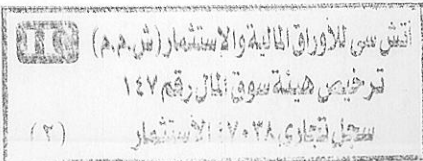 اتش سى للأوراق المالية والإستثمار (ش.م.م)
ترخيص هيئة سوق المال رقم ١٤٧
سجل تجارى ٤٧٠٣٨ الأستثمار (٢)